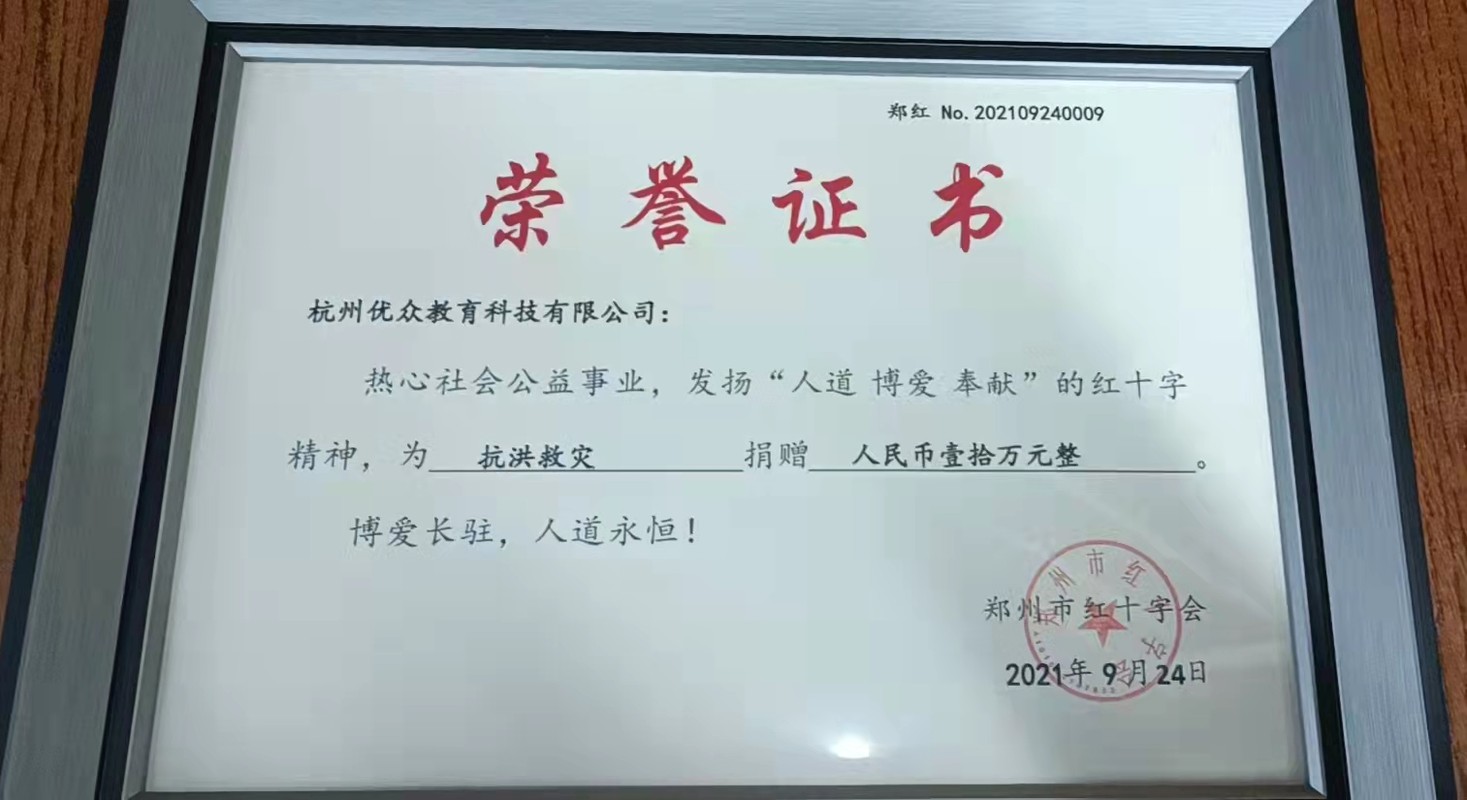 郑红 No. 202109240009
荣誉证书
杭州优众教育科技有限公司：
热心社会公益事业，发扬“人道 博爱 奉献”的红十字
精神，为 抗洪救灾 捐赠 人民币壹拾万元整 。
博爱长驻，人道永恒！
郑州市红十字会
2021年 9月 24日